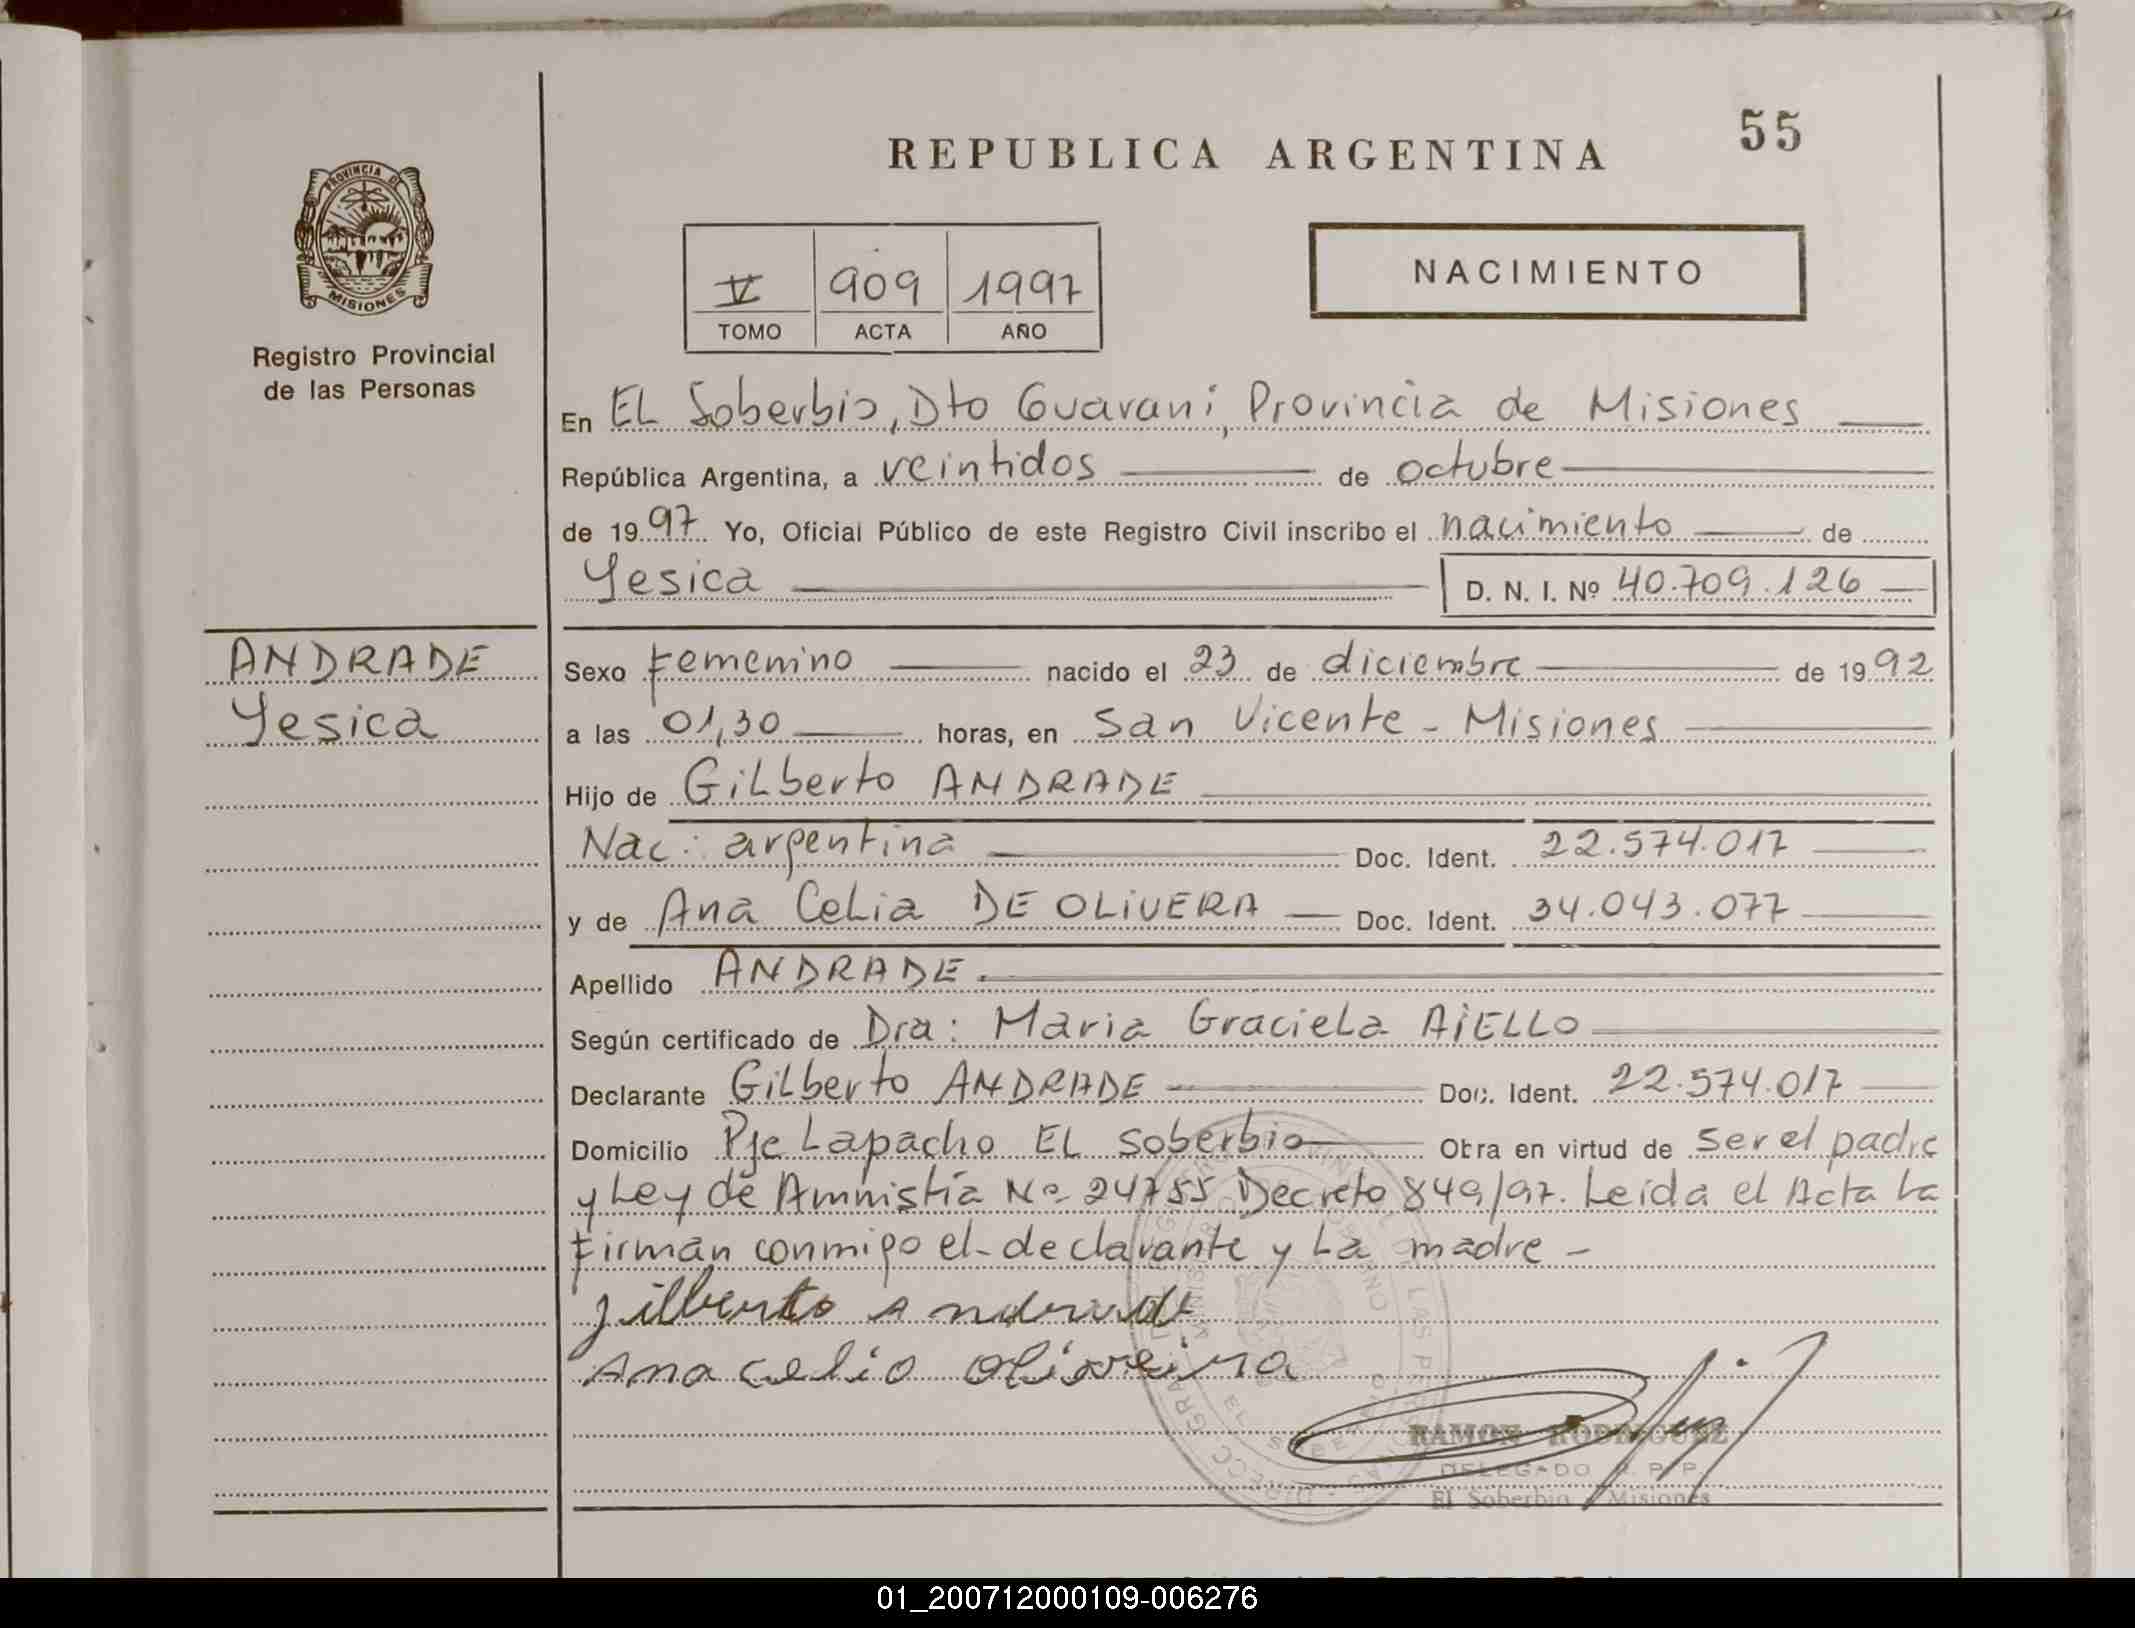 55
REPUBLICA ARGENTINA
PROVINCIA DE
MISIONES
Registro Provincial
de las Personas
V 909 1997
TOMO ACTA AÑO
NACIMIENTO
En EL Soberbio, Dto Guaraní, Provincia de Misiones
República Argentina, a veintidos de octubre
de 1997 Yo, Oficial Público de este Registro Civil inscribo el nacimiento de
Yesica D. N. I. Nº 40.709.126
ANDRADE
Yesica
Sexo Femenino nacido el 23 de diciembre de 1992
a las 01,30 horas, en San Vicente - Misiones
Hijo de Gilberto ANDRADE
Nac: argentina Doc. Ident. 22.574.017
y de Ana Celia DE OLIVERA Doc. Ident. 34.043.077
Apellido ANDRADE.
Según certificado de Dra: Maria Graciela AIELLO
Declarante Gilberto ANDRADE Doc. Ident. 22.574.017
Domicilio Pje Lapacho EL Soberbio Obra en virtud de ser el padre
y Ley de Amnistía Nº 24755 Decreto 849/97. Leida el Acta la
Firman conmigo el declarante y La madre -
Jilberto Andrade
Ana celio Olivreira
RAMON RODRIGUEZ
DELEGADO R. P. P.
El Soberbio Misiones
01_200712000109-006276